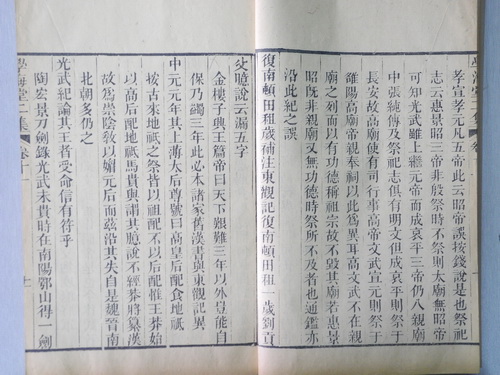 孝宣孝元凡五帝此云昭帝誤按錢說是也祭祀
志云惠景昭三帝非殷祭時不祭則太廟無昭帝
可知光武雖上繼元帝而成哀平三帝仍入親廟
中張純傳及祭祀志俱有明文但成哀平則祭于
長安故高廟使有司行事高帝文武宣元則祭于
雒陽高廟帝親奉祠以此爲異耳高文武不在親
廟之列而以有功德稱祖宗故不毀其廟若惠景
昭既非親廟又無功德時祭所不及者也通鑑亦
沿此紀之誤
復南頓田租歲補注東觀記復南頓田租一歲劉貢
父臆說云漏五字
金樓子興王篇帝曰天下艱難三年以外豈能自
保乃蠲三年此必本諸家舊漢書與東觀記異
中元元年其上薄太后尊號曰高皇后配食地祇
按古未地祇之祭皆以祖配不以后配惟王莽始
以高后配時馬與謂其臆說不經莽將漢
故爲崇陰教以媚元后而茲沿其失自是魏晉南
北朝多仍之
光武紀論其王者受命信有符乎
陶宏景刀劍錄光武未貴時在南陽鄂山得一劍
學海堂二集 卷十一